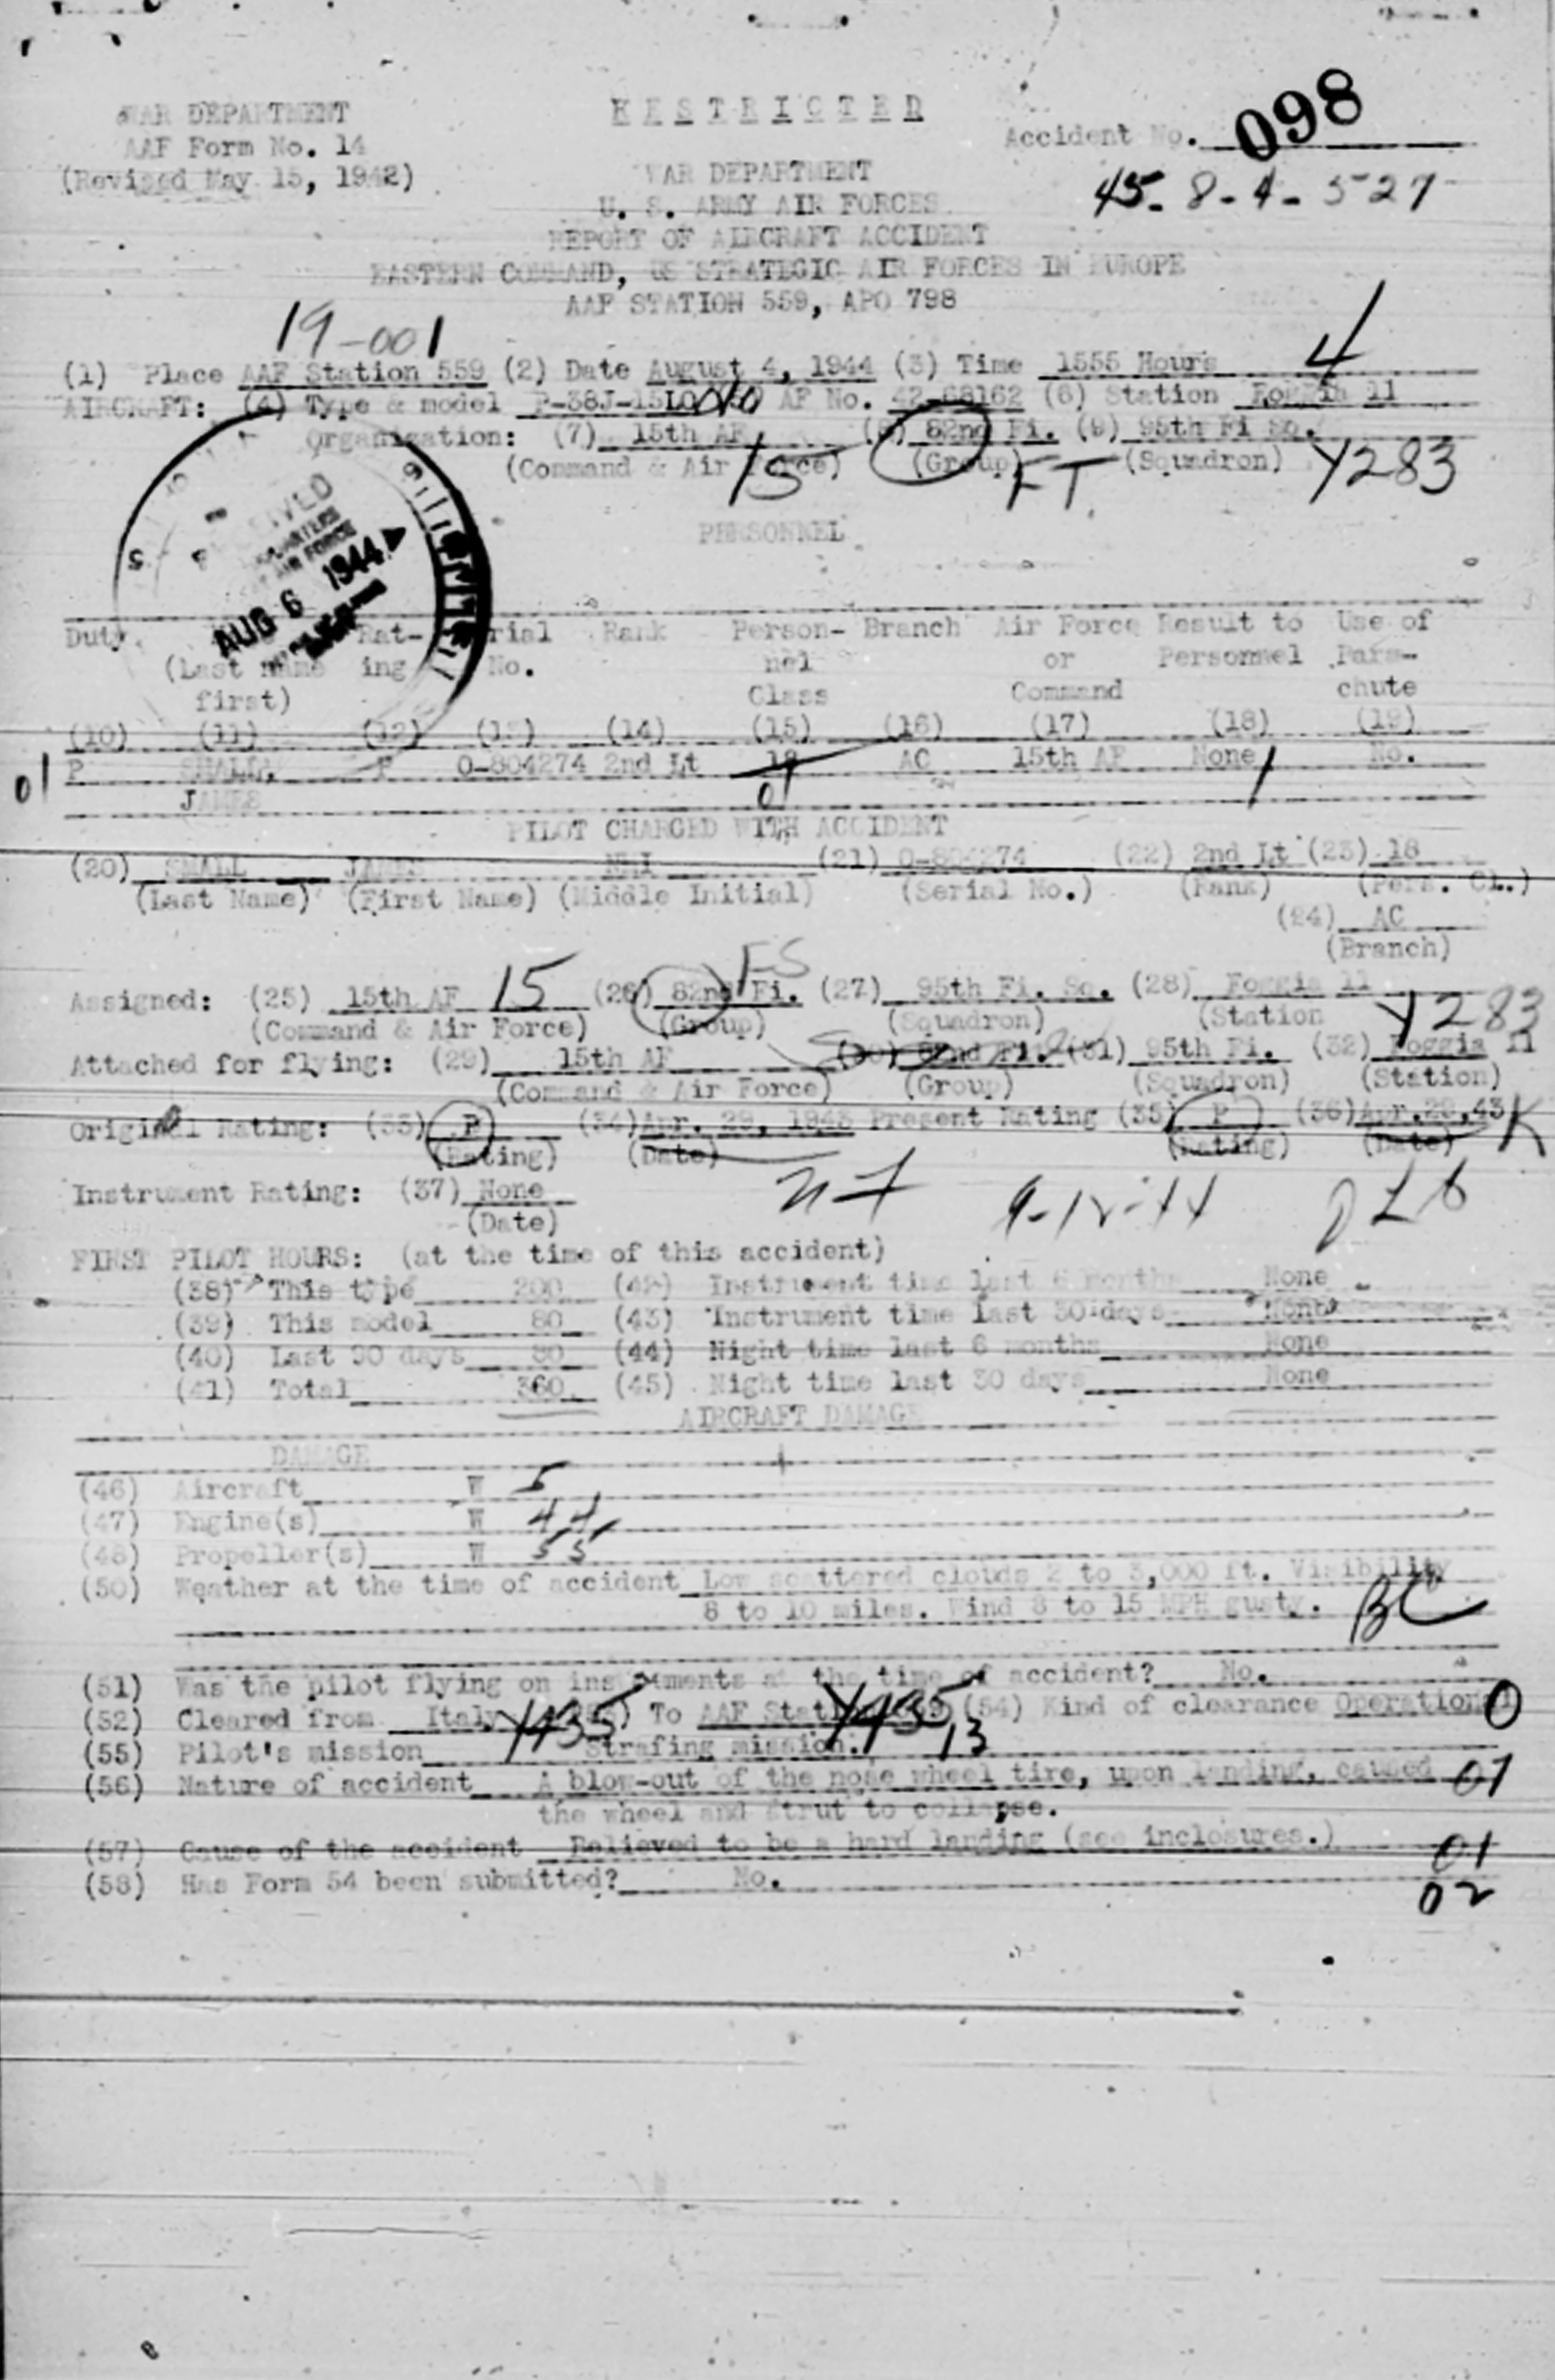 WAR DEPARTMENT
AAF Form No. 14
(Revised May 15, 1942)
RESTRICTED
Accident No. 098
45-8-4-527
WAR DEPARTMENT
U. S. ARMY AIR FORCES
REPORT OF AIRCRAFT ACCIDENT
EASTERN COMMAND, US STRATEGIC AIR FORCES IN EUROPE
AAF STATION 559, APO 798
19-001
4
(1) Place AAF Station 559 (2) Date August 4, 1944 (3) Time 1555 Hours
AIRCRAFT: (4) Type & model P-38J-15LO AF No. 42-68162 (6) Station Foggia 11
Organization: (7) 15th AF (8) 82nd Fi. (9) 95th Fi Sq.
(Command & Air Force) 15 (Group) FT (Squadron) Y283
PERSONNEL
AUG 6 1944
Duty (Last name first) Rat-ing Serial No. Rank Person-nel Class Branch Air Force or Command Result to Personnel Use of Para-chute
(10) (11) (12) (13) (14) (15) (16) (17) (18) (19)
01 P SMALL, P O-804274 2nd Lt 18 AC 15th AF None 1 No.
JAMES 01
PILOT CHARGED WITH ACCIDENT
(20) SMALL JAMES NMI (21) O-804274 (22) 2nd Lt (23) 18
(Last Name) (First Name) (Middle Initial) (Serial No.) (Rank) (Pers. Cl.)
(24) AC
(Branch)
FS
Assigned: (25) 15th AF 15 (26) 82nd Fi. (27) 95th Fi. Sq. (28) Foggia 11
(Command & Air Force) (Group) (Squadron) (Station Y283
Attached for flying: (29) 15th AF (30) 82nd Fi. (31) 95th Fi. (32) Foggia 11
(Command & Air Force) (Group) (Squadron) (Station)
Original Rating: (33) P (34) Apr. 29, 1943 Present Rating (35) P (36) Apr.29,43 K
(Rating) (Date) (Rating) (Date)
Instrument Rating: (37) None
(Date)
FIRST PILOT HOURS: (at the time of this accident)
(38) This type 200 (42) Instrument time last 6 months None
(39) This model 80 (43) Instrument time last 30 days None
(40) Last 90 days 80 (44) Night time last 6 months None
(41) Total 360 (45) Night time last 30 days None
AIRCRAFT DAMAGE
DAMAGE
(46) Aircraft W 5
(47) Engine(s) W 4 4
(48) Propeller(s) W 5 5
(50) Weather at the time of accident Low scattered clouds 2 to 3,000 ft. Visibility
8 to 10 miles. Wind 8 to 15 MPH gusty. BC
(51) Was the pilot flying on instruments at the time of accident? No.
(52) Cleared from Italy Y435 (53) To AAF Station Y435 (54) Kind of clearance Operational 0
(55) Pilot's mission Strafing mission. 13
(56) Nature of accident A blow-out of the nose wheel tire, upon landing, caused 07
the wheel and strut to collapse.
(57) Cause of the accident Believed to be a hard landing (see inclosures.) 01
(58) Has Form 54 been submitted? No. 02